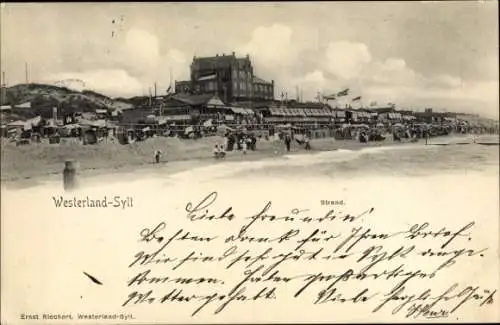 Westerland-Sylt
Strand.
Liebe Freundin!
Besten Dank für Ihren Brief.
Wir sind sehr gut in Sylt ange-
kommen. Haben großartiges
Wetter gehabt. Viele herzliche
Ernst Rickert, Westerland-Sylt.